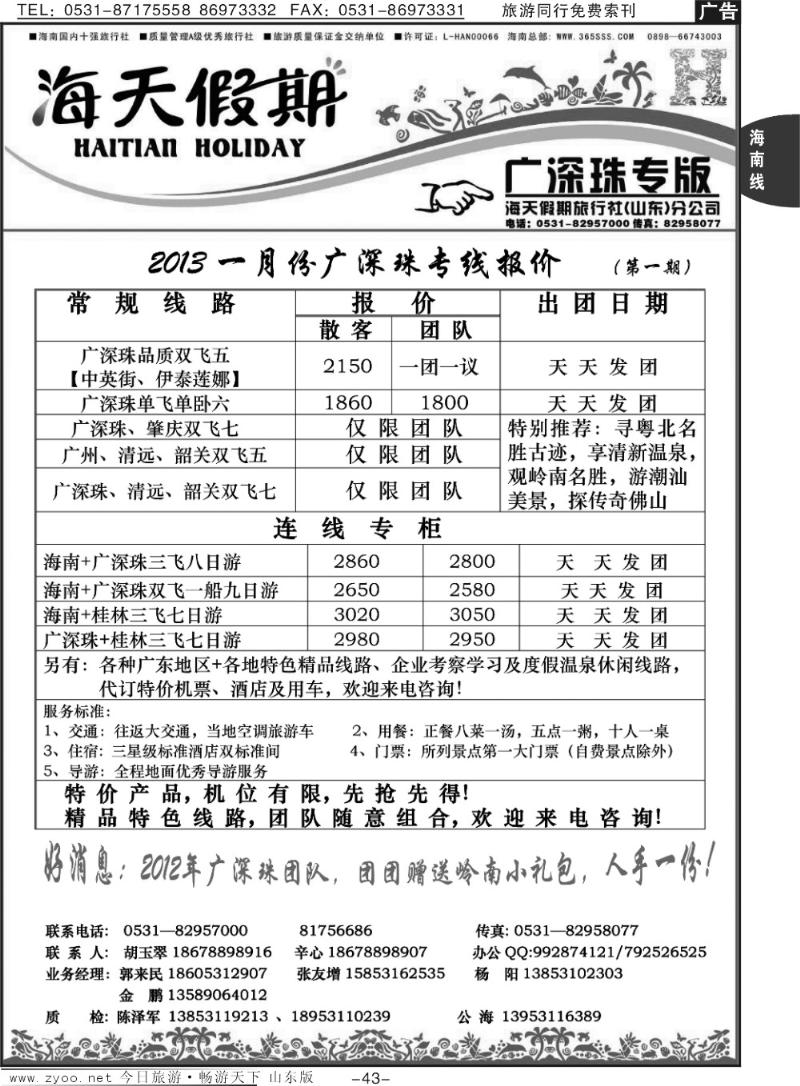 TEL: 0531-87175558 86973332 FAX: 0531-86973331 旅游同行免费索刊 广告
■海南国内十强旅行社 ■质量管理A级优秀旅行社 ■旅游质量保证金交纳单位 ■许可证: L-HAN00066 海南总部: WWW.365SSS.COM 0898-66743003
海天假期
HAITIAN HOLIDAY
H
海南线
广深珠专版
海天假期旅行社(山东)分公司
电话: 0531-82957000 传真: 82958077
2013一月份广深珠专线报价 (第一期)
常规线路 报价 出团日期
散客 团队
广深珠品质双飞五
【中英街、伊泰莲娜】 2150 一团一议 天天发团
广深珠单飞单卧六 1860 1800 天天发团
广深珠、肇庆双飞七 仅限团队
广州、清远、韶关双飞五 仅限团队
广深珠、清远、韶关双飞七 仅限团队
特别推荐：寻粤北名
胜古迹，享清新温泉，
观岭南名胜，游潮汕
美景，探传奇佛山
连线专柜
海南+广深珠三飞八日游 2860 2800 天天发团
海南+广深珠双飞一船九日游 2650 2580 天天发团
海南+桂林三飞七日游 3020 3050 天天发团
广深珠+桂林三飞七日游 2980 2950 天天发团
另有：各种广东地区+各地特色精品线路、企业考察学习及度假温泉休闲线路，
代订特价机票、酒店及用车，欢迎来电咨询!
服务标准:
1、交通：往返大交通，当地空调旅游车 2、用餐：正餐八菜一汤，五点一粥，十人一桌
3、住宿: 三星级标准酒店双标准间 4、门票：所列景点第一大门票（自费景点除外）
5、导游：全程地面优秀导游服务
特价产品，机位有限，先抢先得!
精品特色线路，团队随意组合，欢迎来电咨询!
好消息：2012年广深珠团队，团团赠送岭南小礼包，人手一份!
联系电话: 0531—82957000 81756686 传真: 0531—82958077
联系人: 胡玉翠 18678898916 辛心 18678898907 办公QQ:992874121/792526525
业务经理: 郭来民 18605312907 张友增 15853162535 杨阳 13853102303
金鹏 13589064012
质检: 陈泽军 13853119213 、18953110239 公海 13953116389
www.zyoo.net 今日旅游·畅游天下 山东版 -43-